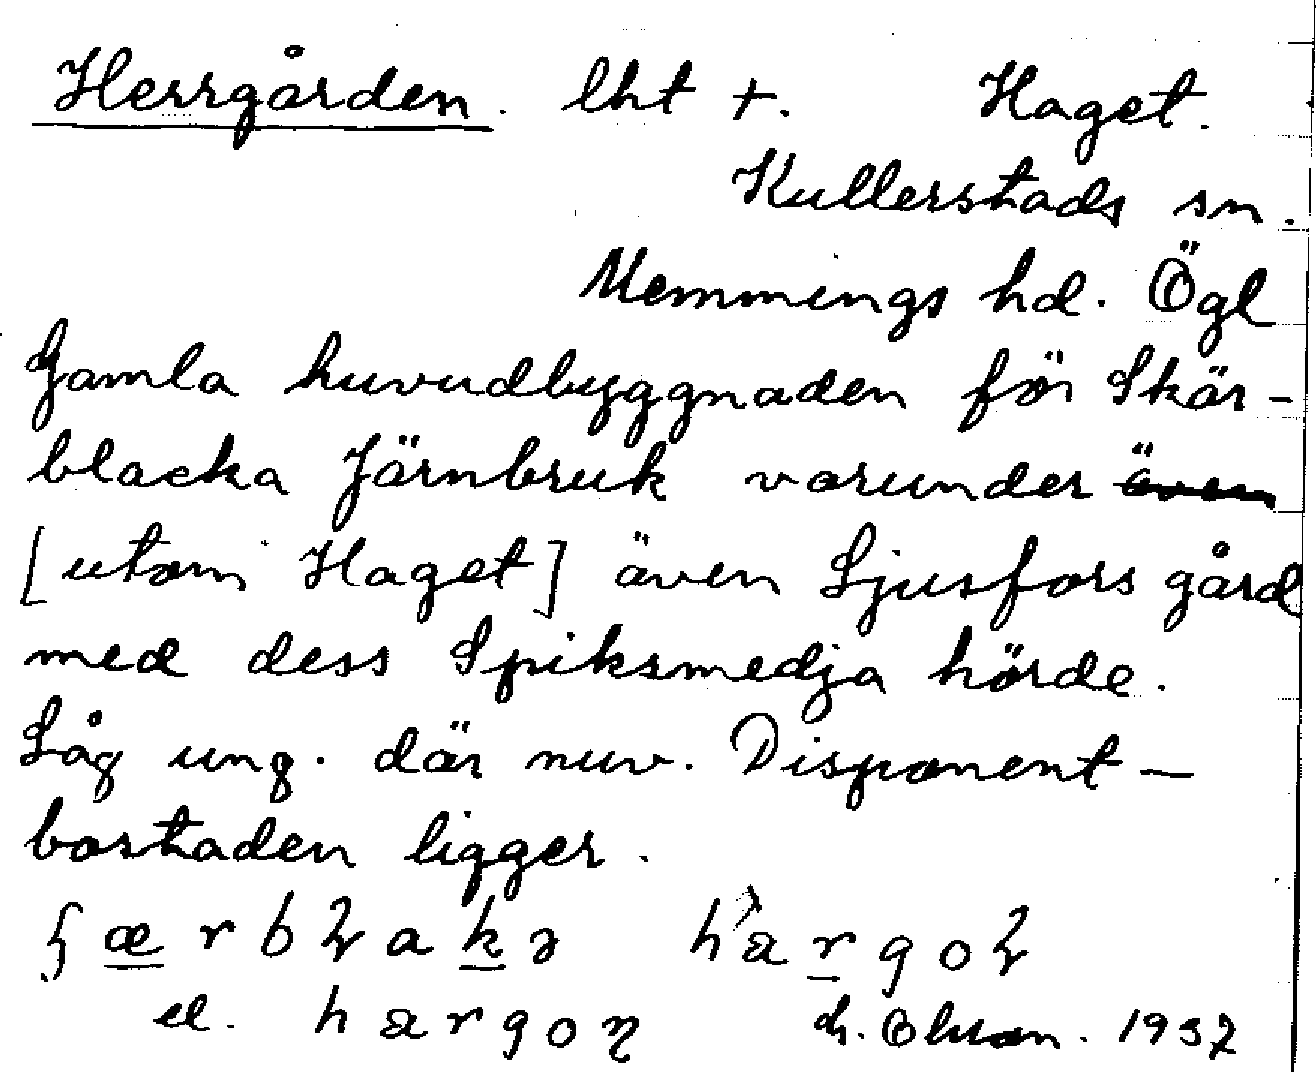 Herrgården. lht +. Haget.
Kullerstads sn.
Memmings hd. Ögl
Gamla huvudbyggnaden för Skär-
blacka Järnbruk varunder även
[utom Haget] även Ljusfors gård
med dess Spiksmedja hörde.
Låg ung. där nuv. Disponent-
bostaden ligger.
el.
1937